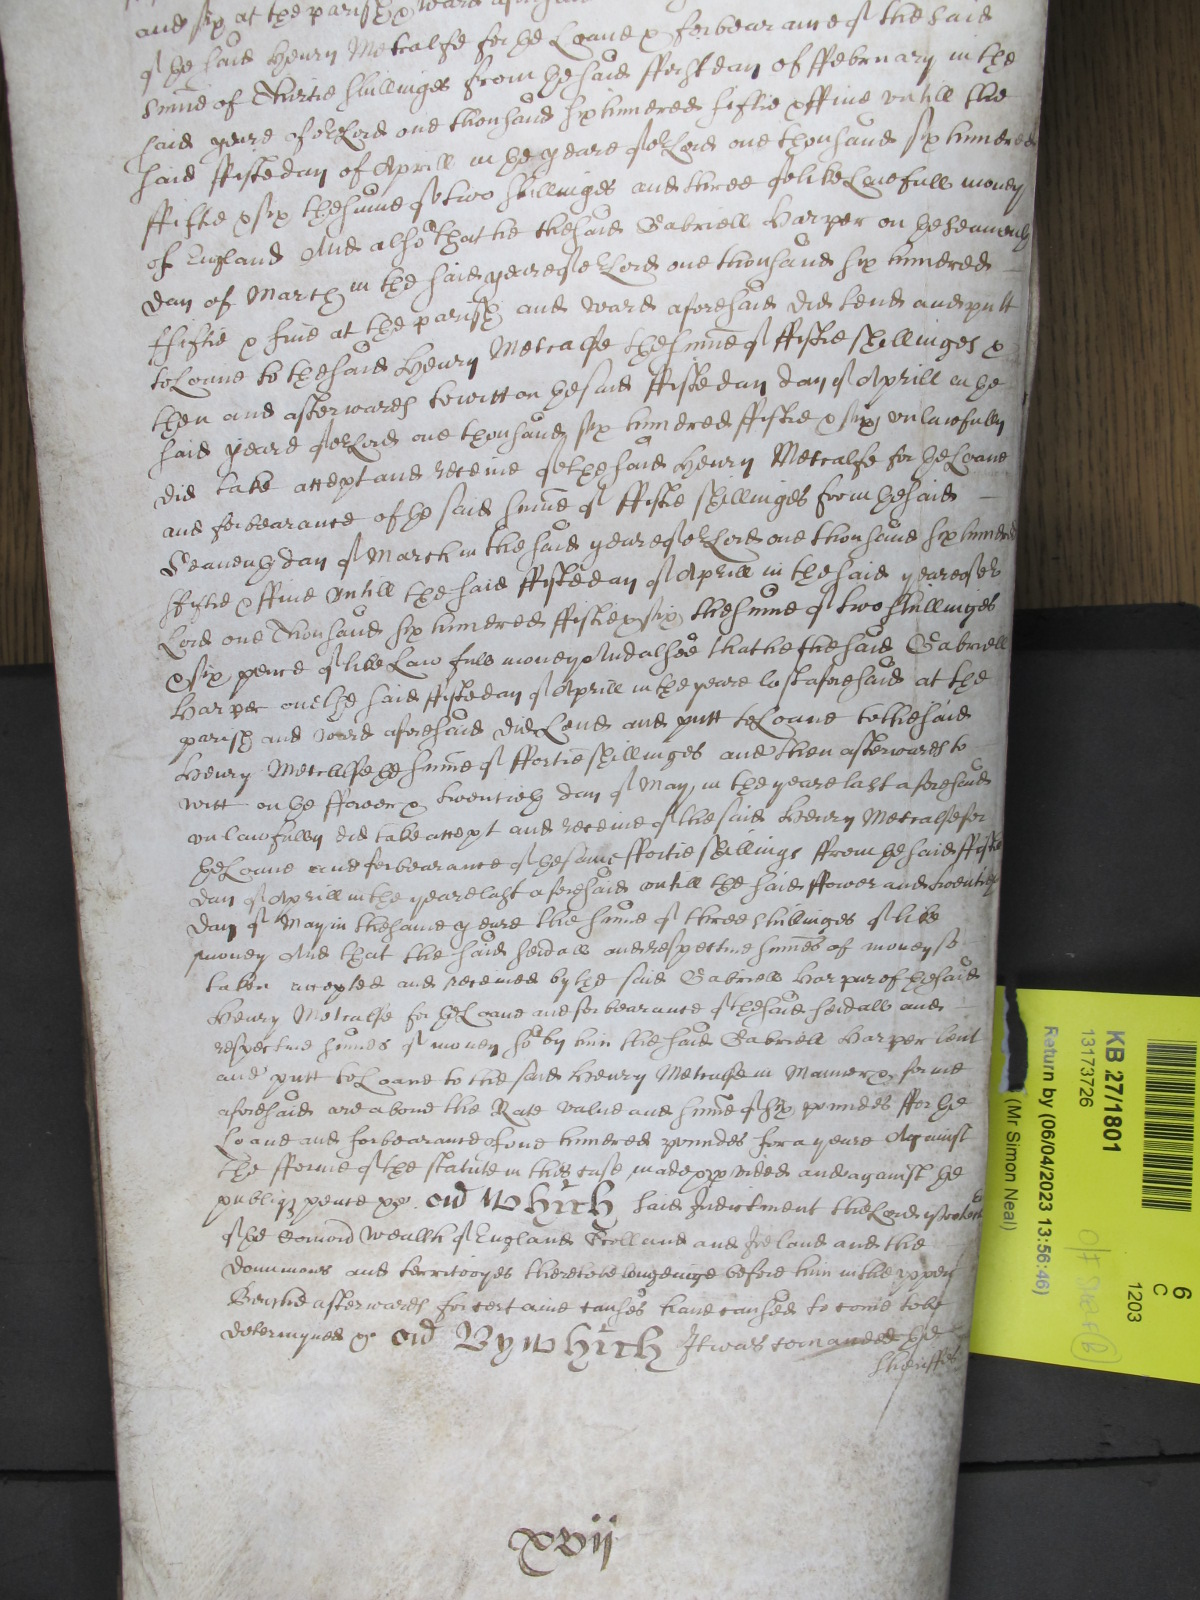 and six at the parish & ward
of the said Henry Metcalfe for the Loane & forbearance of the said
Sume of Thirtie shillinges from the said first day of ffebruary in the
said yeare of or Lord one thousand six hundred fiftie & ffive untill the
said ffifte day of Aprill in the yeare of or Lord one thousand six hundred
ffiftie & six the sume of two shillinges and three of like Lawfull money
of England And also that he the said Gabriell Harper on the seaventh
day of March in the said yeare of or Lord one thousand six hundred
ffiftie & five at the parish and ward aforesaid did lend and putt
to Loane to the said Henry Metcalfe the sume of ffiftie shillinges &
then and afterwards to witt on the said ffifte day day of Aprill in the
said yeare of or Lord one thousand six hundred ffiftie & six unlawfully
did take accept and receive of the said Henry Metcalfe for the Loane
and forbearance of the said sume of ffiftie shillinges from the said
Seaventh day of March in the said yeare of or Lord one thousand six hundred
ffiftie & ffive untill the said ffifte day of Aprill in the said yeare of or
Lord one Thousand six hundred ffiftie & six the sume of two shillinges
& six pence of like Lawfull money And alsoe that he the said Gabriell
Harper on the said ffifte day of Aprill in the yeare last aforesaid at the
parish and ward aforesaid did Lend and putt to Loane to the said
Henry Metcalfe the sume of ffortie shillinges and then afterwards to
witt on the ffower & twentieth day of May in the yeare last aforesaid
unlawfully did take accept and receive of the said Henry Metcalfe for
the Loane and forbearance of the same ffortie shillings ffrom the said ffifte
day of Aprill in the yeare last aforesaid untill the said ffower and twentieth
day of May in the same yeare the sume of three shillinges of like
money And that the said sevall and respective sumes of money so
taken accepted and received by the said Gabriell Harpur of the said
Henry Metcalfe for the Loane and forbearance of the said sevall and
respective sumes of money so by him the said Gabriell Harper lent
and putt to Loane to the said Henry Metcalfe in Manner & forme
aforesaid are above the Rate value and sume of six poundes ffor the
Loane and forbearance of one hundred poundes for a yeare Against
the fforme of the statute in this case made & pvided and against the
publiq peace &c. And Which said Indictment the Lord ptector
of the Comon Wealth of England Scotland and Ireland and the
dominions and territoryes thereto belonginge before him in the upper
Bench afterwards for certaine causes have caused to come to be
determyned &c And By which It was comanded the
Sheriffes
xvii
KB 27/1801
13173726
Return by (06/04/2023 13:56:46)
(Mr Simon Neal)
6
C
1203